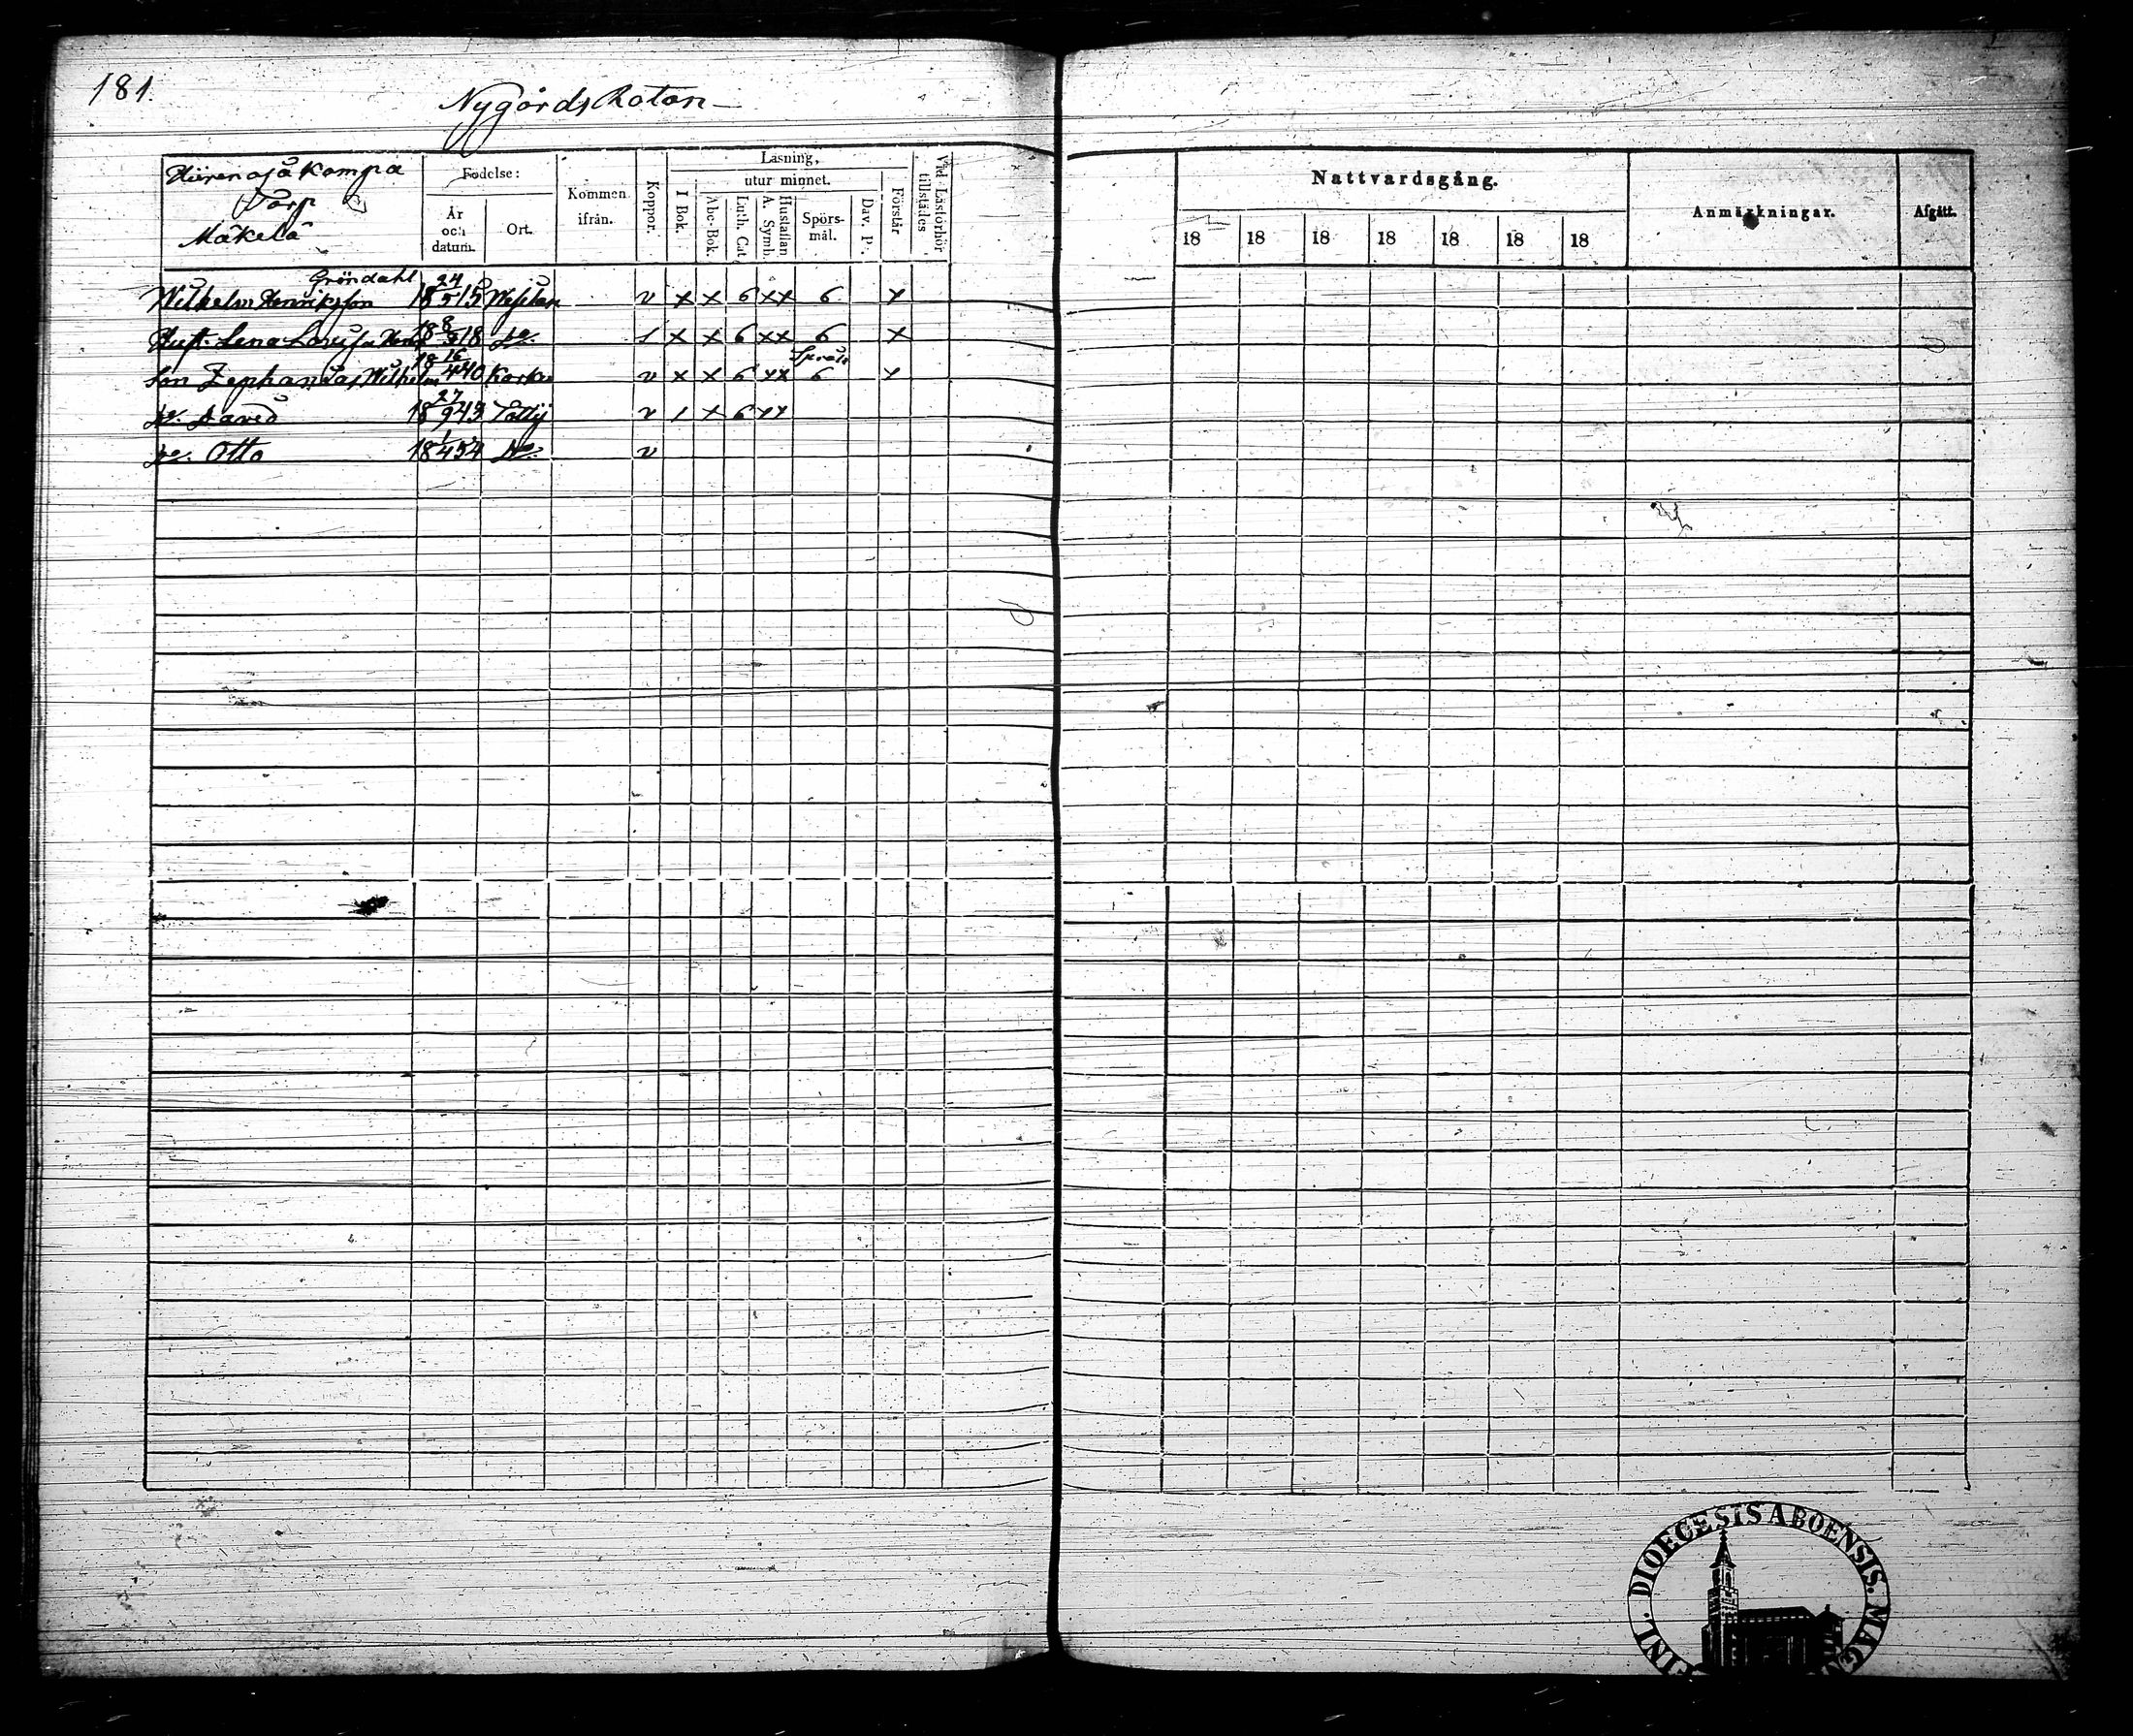 181.
Nygårds Rotan
Hiirenoja Kompa
Torp
Mäkelä
Födelse:
År och datum.
Ort.
Kommen ifrån.
Koppor.
Läsning,
utur minnet.
I Bok.
Abc-Bok.
Luth. Cat
Hustaflan A. Symb.
Spörs-mål.
Dav. P.
Förstår
Vid Läsförhör tillstädes
Nattvardsgång.
18 18 18 18 18 18 18
Anmärkningar.
Afgått.
Gröndahl
Wilhelm Henriksson 18 24/5 15 v x x 6 xx 6 x
Hust. Lena Lovisa 18 18 Do. 1 x x 6 xx 6 x
Son Zephanias Wilhelm 18 16/4 40 v x x 6 xx 6 x
Do. David 18 27/9 43 v 1 x 6 xx
Do. Otto 18 1/4 54 Do. v
FINL. DIOECESIS ABOENSIS. MAG